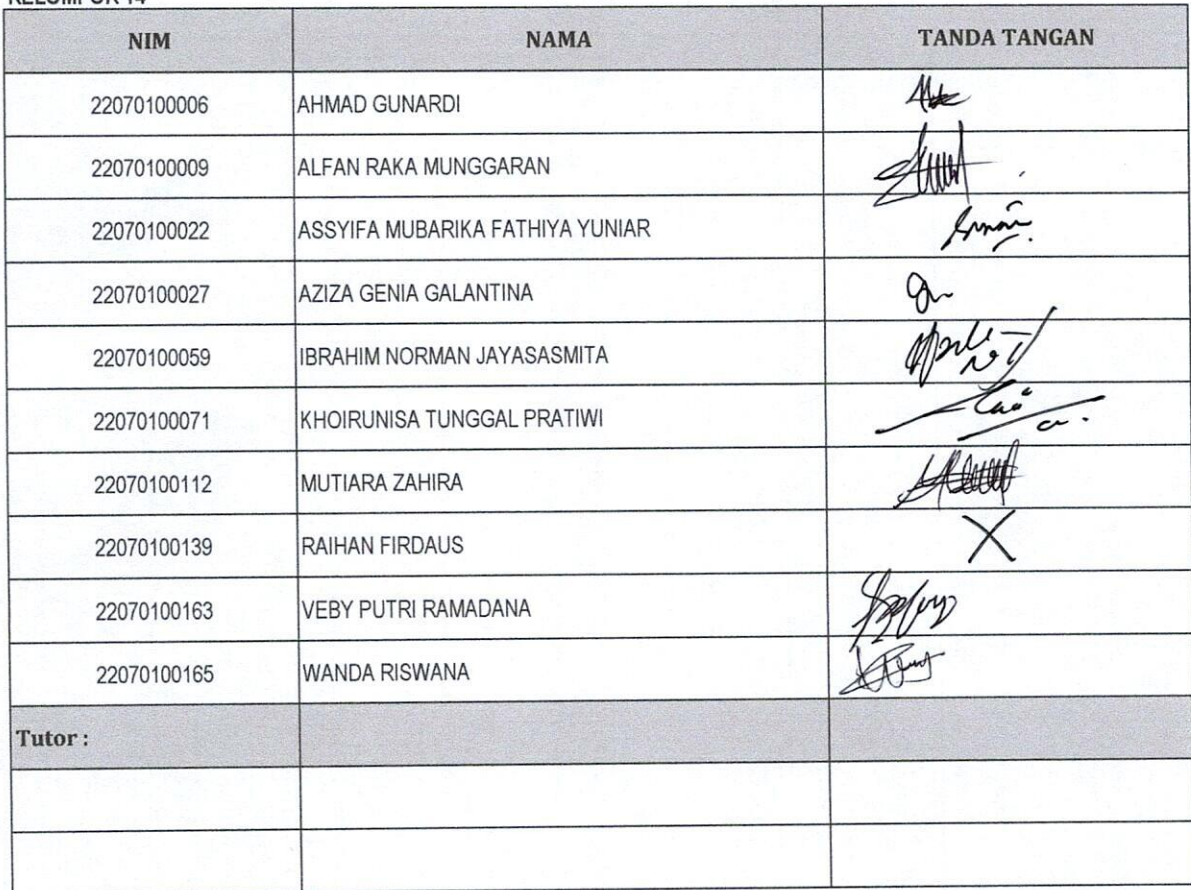 KELOMPOK 14
NIM NAMA TANDA TANGAN
22070100006 AHMAD GUNARDI
22070100009 ALFAN RAKA MUNGGARAN
22070100022 ASSYIFA MUBARIKA FATHIYA YUNIAR
22070100027 AZIZA GENIA GALANTINA
22070100059 IBRAHIM NORMAN JAYASASMITA
22070100071 KHOIRUNISA TUNGGAL PRATIWI
22070100112 MUTIARA ZAHIRA
22070100139 RAIHAN FIRDAUS X
22070100163 VEBY PUTRI RAMADANA
22070100165 WANDA RISWANA
Tutor :